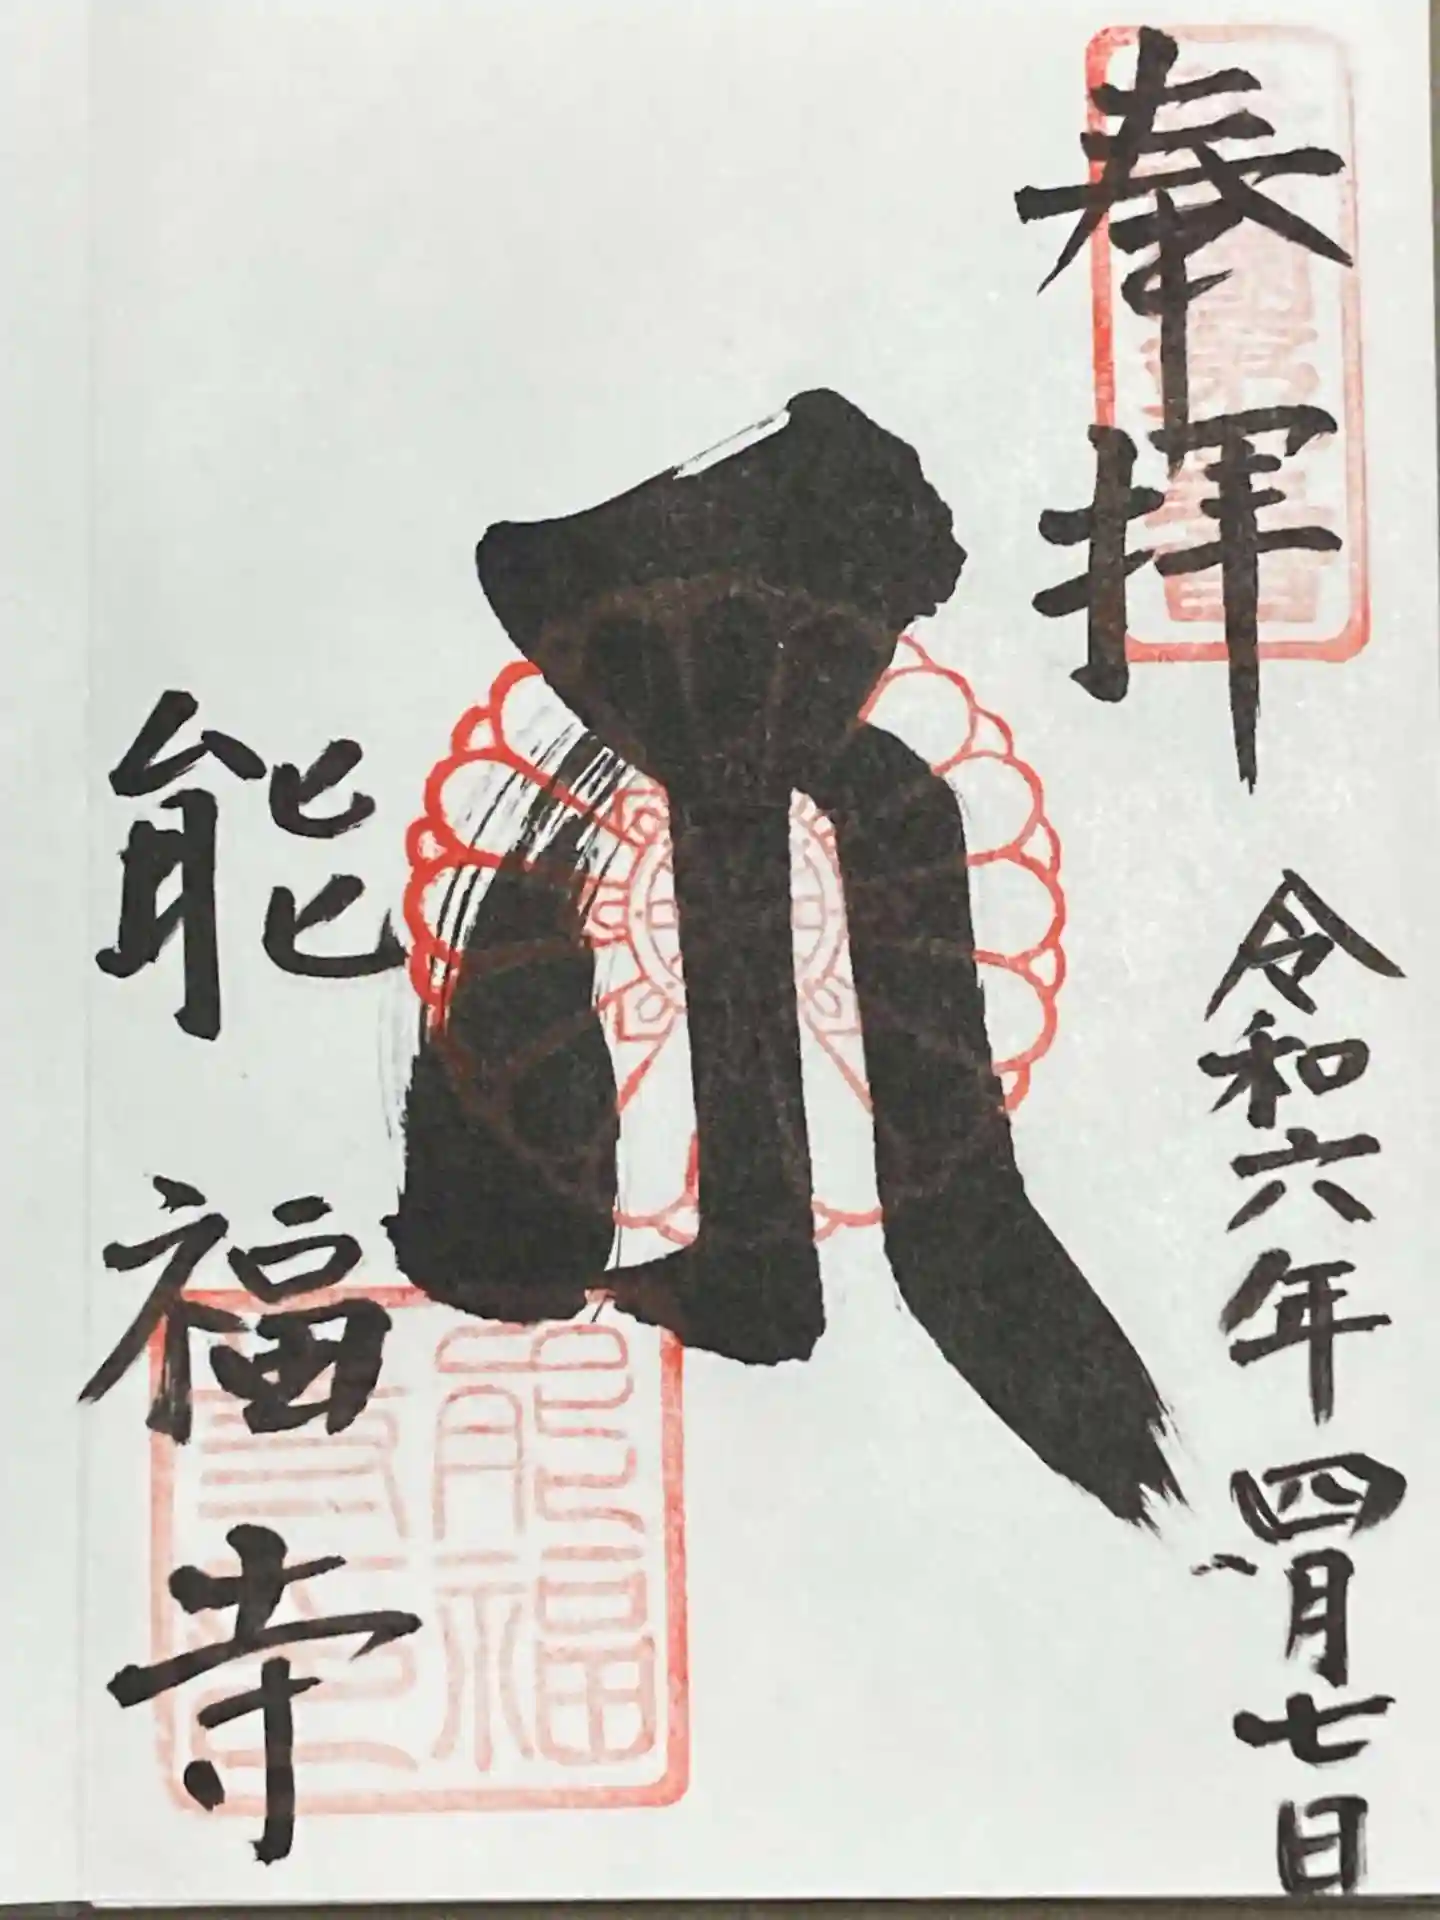 奉拝
令和六年四月七日
能福寺
能福
寺印